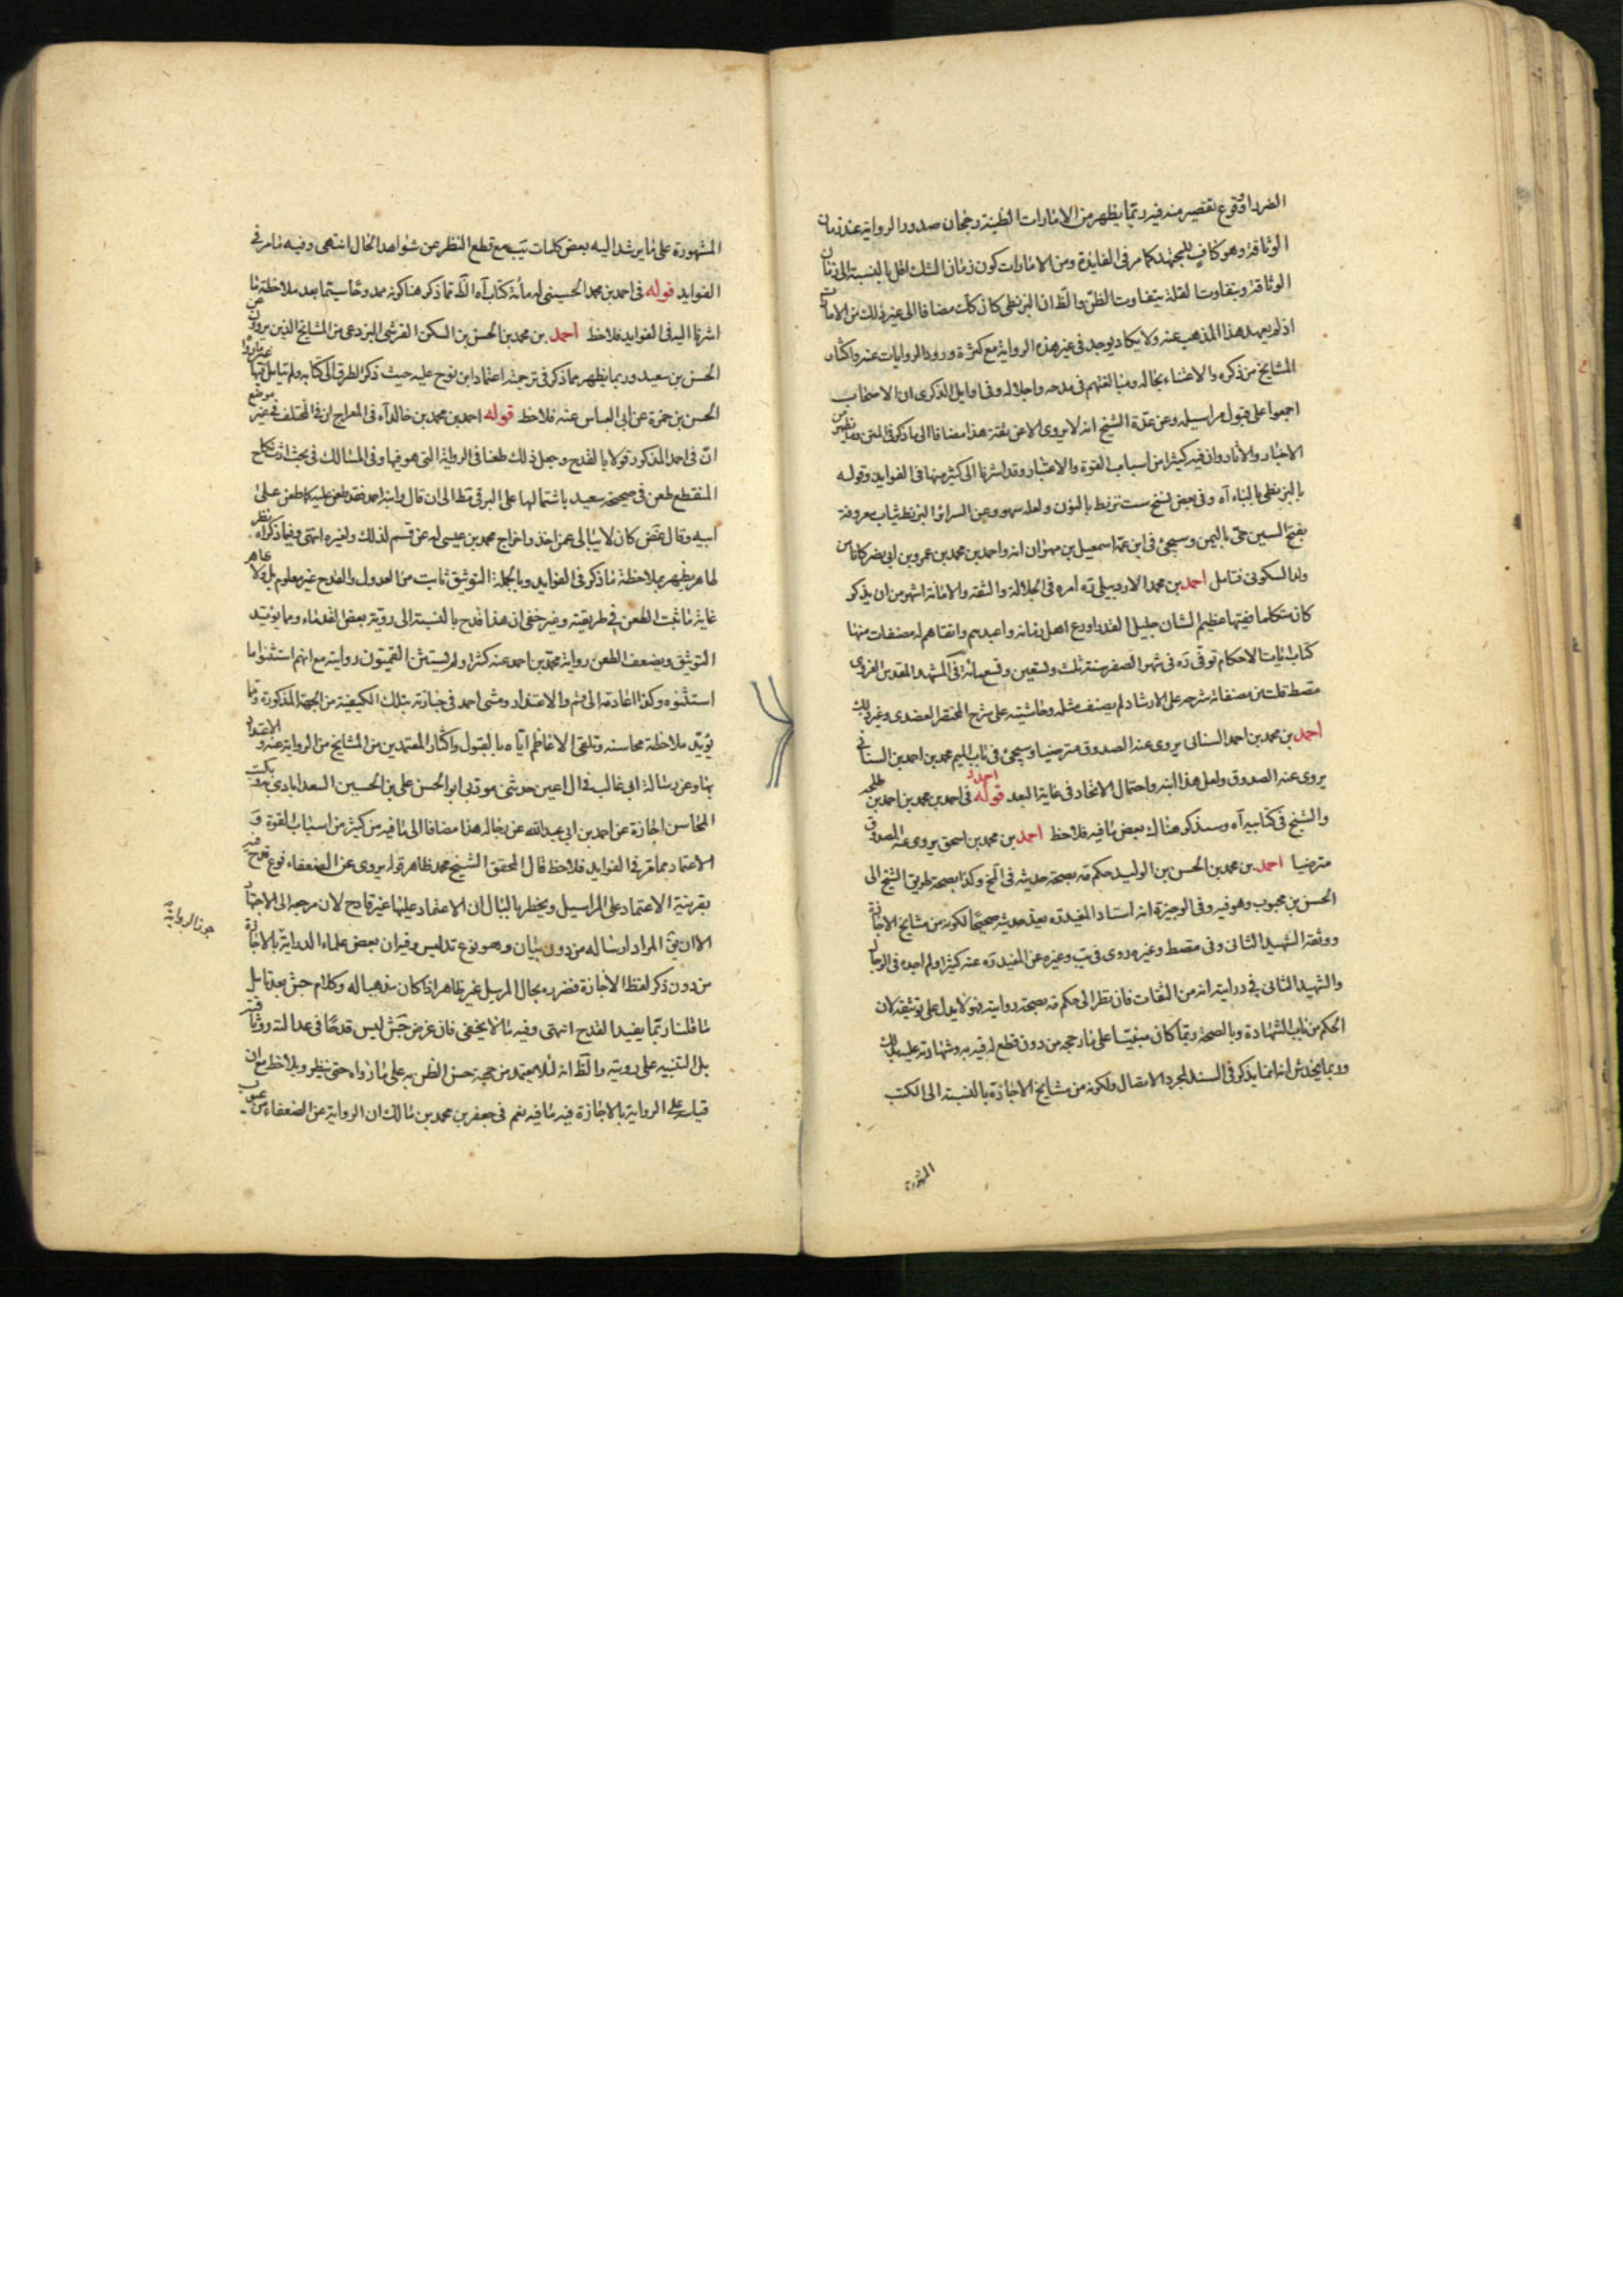 الضرر او وقوع تقصير منه فيه ربّما يظهر من الامارات الظنية رجحان صدور الرواية عنه زمان
الوثاقة وهو كاف للمجتهد كما مر فى الفايدة ومن الامارات كون زمان الشك اقل بالنسبة الى زمان
الوثاقة وبتفاوت القلة يتفاوت الظن والظ ان البزنطى كان كك مضافا الى غير ذلك من الامارات
اذ لم يعهد هذا المذهب عنه ولا يكاد يوجد فى غير هذه الرواية مع كثرة ورود الروايات عنه واكثار
المشايخ من ذكره والاعتناء بحاله ومبالغتهم فى مدحه واجلاله وفى اوايل الذكرى ان الاصحاب
اجمعوا على قبول مراسيله وعن عدّة الشيخ انه لا يروى الا عن ثقة هذا مضافا الى ما ذكر فى المتن وما يظهر من
الاخبار والاثار وان فيه كثيرا من اسباب القوة والاعتبار وقد اشرنا الى كثير منها فى الفوايد وقوله
بالبزنطى بالباء آه وفى بعض نسخ ست نزبط بالنون ولعله سهو وعن السرائر البزنط ثياب معروفة
بفتح السين حىّ باليمن وسيجئ فى ابن عمه اسمعيل بن مهران انه واحمد بن محمد بن عمرو بن ابى نصر كانا من
ولد السكونى فتامل احمد بن محمد الاردبيلى ره امره فى الجلالة والثقة والامانة اشهر من ان يذكر
كان متكلما فقيها عظيم الشان جليل القدر اورع اهل زمانه واعبدهم واتقاهم له مصنفات منها
كتاب ايات الاحكام توفى ره فى شهر الصفر سنة ثلث وتسعين وتسعمائة فى المشهد المقدس الغروى
مصط قلت من مصنفاته شرحه على الارشاد لم يصنف مثله وحاشيته على شرح المختصر العضدى وغير ذلك
احمد بن محمد بن احمد السنانى يروى عنه الصدوق مترضيا وسيجئ فى باب الميم محمد بن احمد بن السنانى
يروى عنه الصدوق ولعل هذا ابنه واحتمال الاتحاد فى غاية البعد احمد قوله فى احمد بن محمد بن احمد بن طلحه
والشيخ فى كتابيه آه وسنذكر هناك بعض ما فيه فلاحظ احمد بن محمد بن اسحق يروى عنه الصدوق
مترضيا احمد بن محمد بن الحسن بن الوليد حكم مه بصحة حديثه فى الخ وكذا بصحة طريق الشيخ الى
الحسن بن محبوب وهو فيه وفى الوجيزة انه استاد المفيد ره يعدّ حديثه صحيحا لكونه من مشايخ الاجازة
ووثقه الشهيد الثانى وفى مقصط وغيره روى فى يب وغيره عن المفيد ره عنه كثيرا ولم اجده فى الرجال
والشهيد الثانى فى درايته انه من الثقات فان نظر الى حكم مه بصحة روايته فهو لا يدل على توثيقه لان
الحكم من باب الشهادة وبالصحة ربّما كان مبنيّا على ما رجحه من دون قطع له فيه به وشهادته عليه بذلك
وربما يخدش انه انما يذكر فى السند لمجرد الاتصال ولكونه من مشايخ الاجازة بالنسبة الى الكتب
المشهورة
المشهورة على ما يرشد اليه بعض كلمات يب مع قطع النظر عن شواهد الحال انتهى وفيه ما مر فى
الفوايد قوله فى احمد بن محمد الحسينى له مائة كتاب آه الظ مما ذكر هنا كونه ممدوحا سيّما بعد ملاحظة ما
اشرنا اليه فى الفوايد فلاحظ احمد بن محمد بن الحسن بن السكن القرشى البردعى من المشايخ الذين يروون عن
الحسن بن سعيد وربما يظهر مما ذكر فى ترجمته اعتماد ابن نوح عليه حيث ذكر الطرق الى كتابه ولم يتامل فيها
الحسن بن حمزة عن ابى العباس عنه فلاحظ قوله احمد بن محمد بن خالد آه فى المعراج ان فى المختلف فى غير موضع
ان فى احمد المذكور قولا بالقدح وجعل ذلك طعنا فى الرواية التى هو فيها وفى المسالك فى بحث
المنقطع طعن فى صحيحة سعيد باشتمالها على البرقى مط الى ان قال وابنه احمد فقد طعن عليه كما طعن على
ابيه وقال غض كان لا يبالى عمن اخذ واخراج محمد بن عيسى له عن قم لذلك ولغيره انتهى وفيما ذكراه نظر
ظاهر يظهر بملاحظة ما ذكر فى الفوايد وبالجملة التوثيق ثابت من العدول والقدح غير معلوم بل ولا ظاهر
غاية ما ثبت الطعن فى طريقته وغير خفى ان هذا قدح بالنسبة الى رويّة بعض القدماء ومما يؤيد
التوثيق ويضعف الطعن رواية محمد بن احمد عنه كثيرا ولم يستثن القميّون روايته مع انهم استثنوا ما
استثنوه وكذا اعادته الى قم والاعتذار ومشى احمد فى جنازته بتلك الكيفية من الجهة المذكورة ومما
يؤيد ملاحظة محاسنه وتلقى الاعاظم اياه بالقبول واكثار المعتمدين من المشايخ من الرواية عنه والاعتداد
بها وعن رسالة ابى غالب فى ال اعين حدثنى مؤدبى ابو الحسن على بن الحسين السعدابادى به وبكتب
المحاسن اجازة عن احمد بن ابى عبدالله عن رجاله هذا مضافا الى ما فيه من كثير من اسباب القوة و
الاعتماد مما مر فى الفوايد فلاحظ قال المحقق الشيخ محمد ظاهر قوله يروى عن الضعفاء نوع قدح فيه
بقرينة الاعتماد على المراسيل ويخطر بالبال ان الاعتماد عليها غير قادح لان مرجعه الى الاجتهاد
الا ان يق المراد ارساله من دون بيان وهو نوع تدليس وفيه ان بعض علماء الدراية بالاجازة
جوز الرواية
من دون ذكر لفظ الاجازة فضرره بحال المرسل غير ظاهر اذا كان مذهبا له وكلام جش بعد تامل
ما قلنا ربّما يفيد القدح انتهى وفيه ما لا يخفى فان غرض جش ليس قدحا فى عدالته ووثاقته
بل التنبيه على رويته والظ انه لئلا يعتمد من جهة حسن الظن به على ما رواه حتى ينظر ويلاحظ مع ان
قياسه على الرواية بالاجازة فيه ما فيه نعم فى جعفر بن محمد بن مالك ان الرواية عن الضعفاء من عيوب